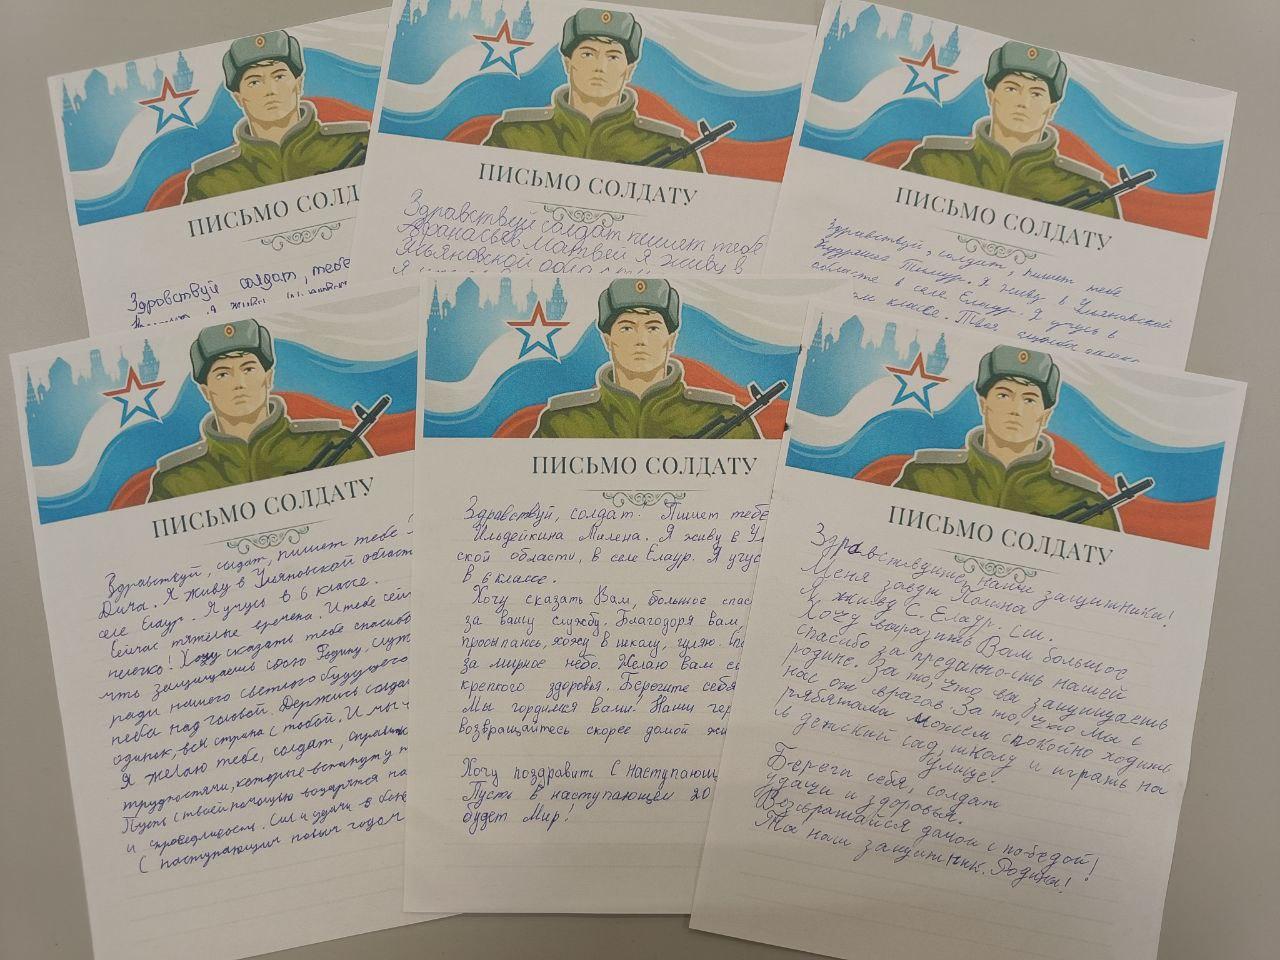 ПИСЬМО СОЛД
Здравствуй солдат, тебе
ПИСЬМО СОЛДАТУ
Здравствуй солдат пишет тебе
Афанасьев Матвей я живу в
Ульяновской области
ПИСЬМО СОЛДАТУ
Здравствуй, солдат, пишет тебе
Тимур. Я живу в Ульяновской
области в селе Елаур. Я учусь в
классе. Твоя служба
ПИСЬМО СОЛДАТУ
Здравствуй, солдат, пишет тебе
Дича. Я живу в Ульяновской област
селе Елаур. Я учусь в 6 классе.
Сейчас тяжёлые времена. И тебе сей
нелегко! Хочу сказать тебе спасибо
что защищаешь свою Родину, служ
ради нашего светлого будущего
неба над головой. Держись солда
одинок, вся страна с тобой. И мы
Я желаю тебе, солдат, справит
трудностями, которые встанут у
Пусть с твоей помощью воцарятся на
и справедливость. Сил и удачи в бо
С наступающим новым годом
ПИСЬМО СОЛДАТУ
Здравствуй, солдат. Пишет тебе
Ильдейкина Милена. Я живу в Ул
ской области, в селе Елаур. Я учус
в 6 классе.
Хочу сказать Вам, большое спас
за вашу службу. Благодоря вам,
просыпаюсь, хожу в школу, гуляю.
за мирное небо. Желаю вам
крепкого здоровья. Берегите себя
Мы гордимся вами. Наши гер
возвращайтесь скорее домой жи
Хочу поздравить С наступающ
Пусть в наступающем 20
будет Мир!
ПИСЬМО СОЛДАТУ
Здравствуйте, наши защитники!
Меня завут Полина
Я живу С. Елаур.
Хочу выразить Вам большое
спасибо за преданность нашей
родине. За то, что вы защищаеть
нас от врагов. За то, что мы с
рябятами можем спокойно ходить
в детский сад, школу и играть на
улице!
Береги себя, солдат
Удачи и здоровья.
Возвращайся домой с победой!
Ты наш защитник. Родины!